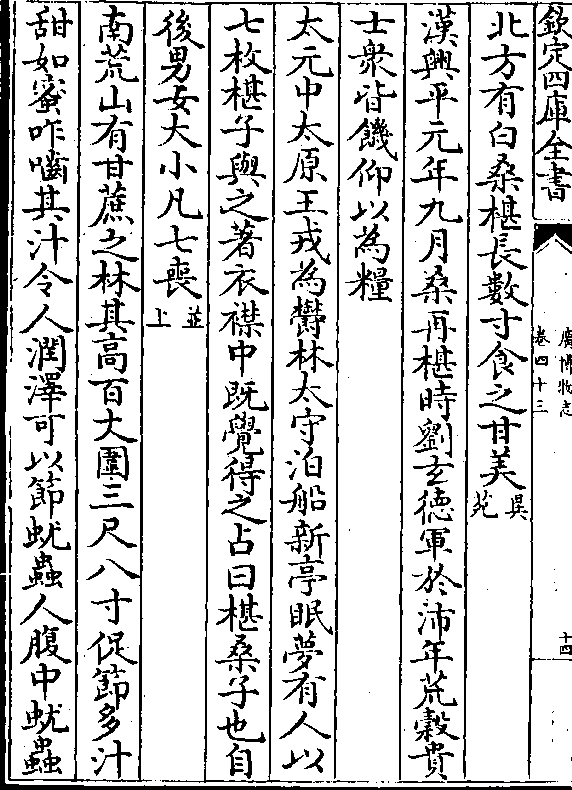 欽定四庫全書
廣博物志
卷四十三
十四
北方有白桑椹長數寸食之甘美異苑
漢興平元年九月桑再椹時劉玄德軍於沛年荒穀貴
士衆皆饑仰以為糧
太元中太原王戎為欝林太守泊船新亭眠夢有人以
七枚椹子與之著衣襟中既覺得之占曰椹桑子也自
後男女大小凡七喪並上
南荒山有甘蔗之林其高百丈圍三尺八寸促節多汁
甜如蜜咋嚙其汁令人潤澤可以節蚘蟲人腹中蚘蟲